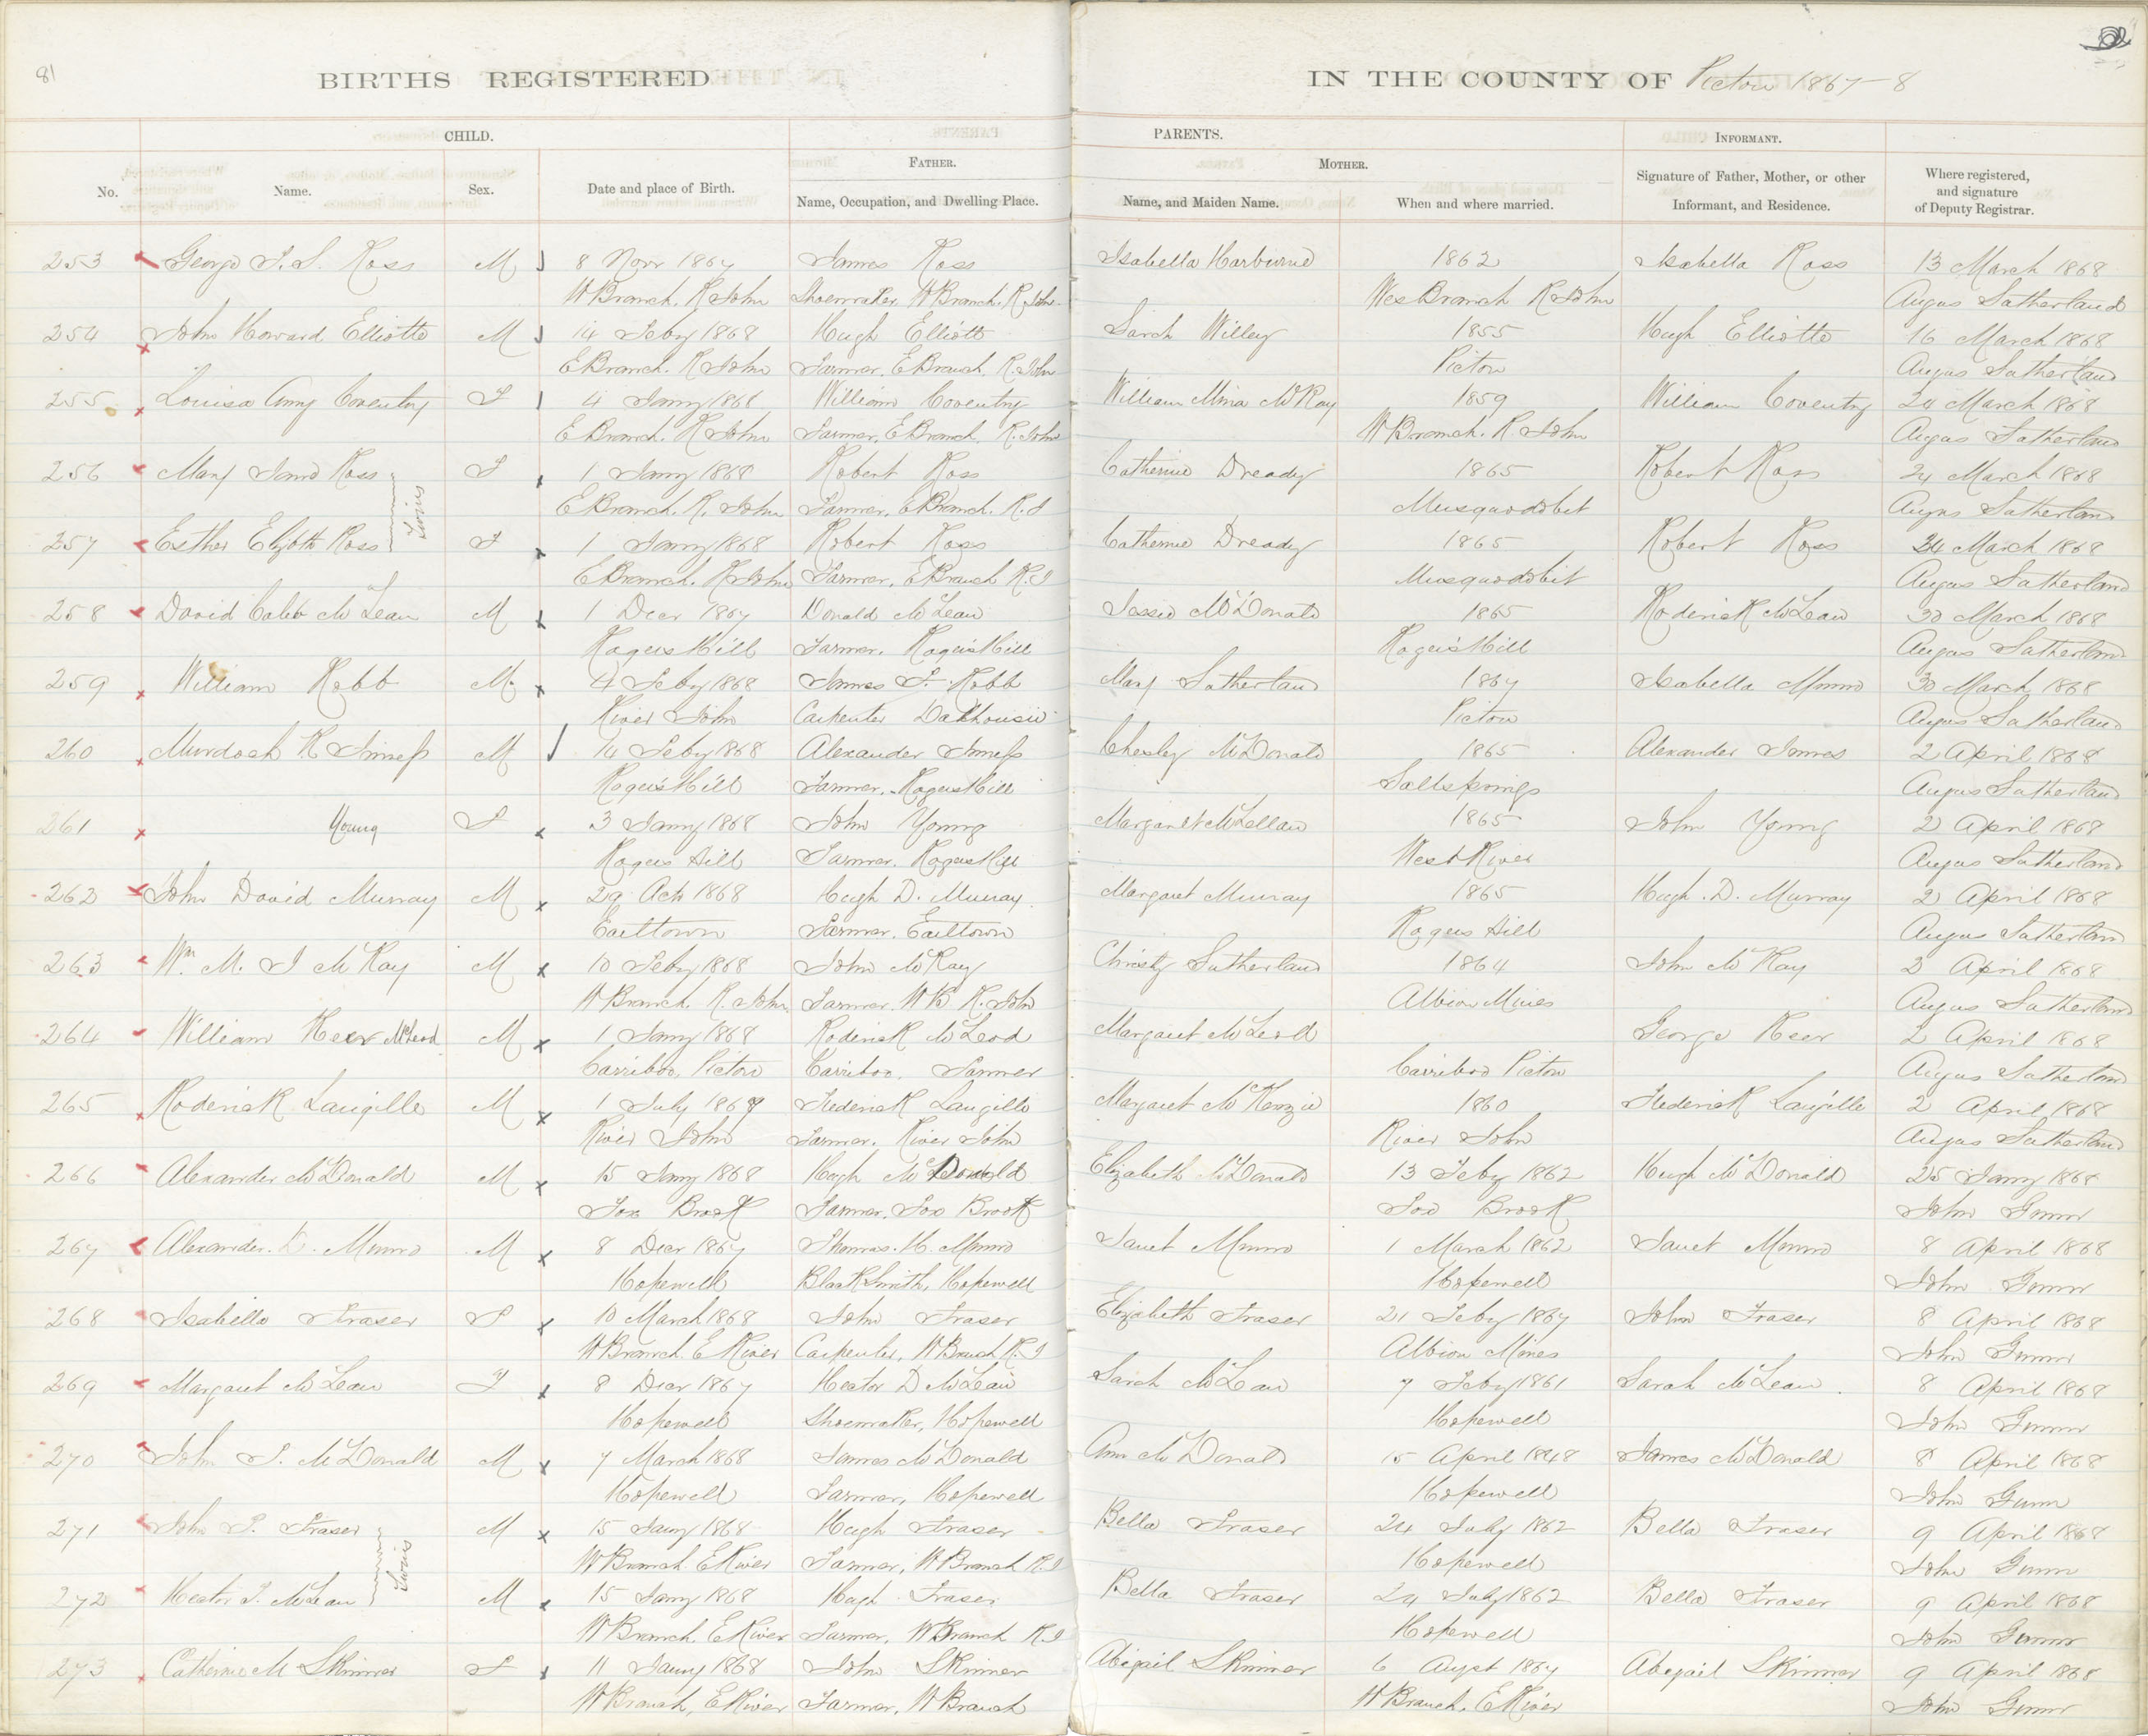 81
BIRTHS REGISTERED IN THE COUNTY OF Pictou 1867-8
CHILD. PARENTS. INFORMANT.
FATHER. MOTHER.
No. Name. Sex. Date and place of Birth. Name, Occupation, and Dwelling Place. Name, and Maiden Name. When and where married. Signature of Father, Mother, or other Informant, and Residence. Where registered, and signature of Deputy Registrar.
253 George S. S. Ross M 8 Novr 1867 James Ross Isabella Harburne 1862 Isabella Ross 13 March 1868
W Branch. R John Shoemaker, W Branch. R John Wes Branch R John Angus Sutherland
254 John Howard Elliotte M 14 Feby 1868 Hugh Elliott Sarah Willey 1855 Hugh Elliotte 16 March 1868
E Branch. R John Farmer, E Branch. R. John Pictou Angus Sutherland
255 Louisa Amy Coventry F 4 Jany 1868 William Coventry William Mina McKay 1859 William Coventry 24 March 1868
E Branch. R John Farmer, E Branch, R. John W Branch. R. John Angus Sutherland
256 Mary Jane Ross Twins F 1 Jany 1868 Robert Ross Catherine Dready 1865 Robert Ross 24 March 1868
E Branch. R. John Farmer, E Branch. R. J Musquodobit Angus Sutherland
257 Esther Elizbth Ross F 1 Jany 1868 Robert Ross Catherine Dready 1865 Robert Ross 24 March 1868
E Branch. R John Farmer, E Branch R. J Musquodobit Angus Sutherland
258 David Calib McLean M 1 Decr 1867 Donald McLean Jessie McDonald 1865 Roderick McLean 30 March 1868
Rogers Hill Farmer. Rogers Hill Rogers Hill Angus Sutherland
259 William Robb M. 4 Feby 1868 James S. Robb Mary Sutherland 1867 Isabella Munro 30 March 1868
River John Carpenter Dalhousie Pictou Angus Sutherland
260 Murdoch R Innefs M 14 Feby 1868 Alexander Innefs Chesley McDonald 1865 Alexander Innes 2 April 1868
Rogers Hill Farmer. Rogers Hill Saltsprings Angus Sutherland
261 Young F 3 Jany 1868 John Young Margaret McLellan 1865 John Young 2 April 1868
Rogers Hill Farmer. Rogers Hill West River Angus Sutherland
262 John David Murray M 29 Oct 1868 Hugh D. Murray Margaret Murray 1865 Hugh. D. Murray 2 April 1868
Earltown Farmer. Earltown Rogers Hill Angus Sutherland
263 Wm. M. J McKay M 10 Feby 1868 John McKay Christy Sutherland 1864 John McKay 2 April 1868
W Branch. R. John Farmer. W B R. John Albion Mines Angus Sutherland
264 William Keer McLeod M 1 Jany 1868 Roderick McLeod Margaret McLeod George Keer 2 April 1868
Carriboo Pictou Carriboo. Farmer Carriboo Pictou Angus Sutherland
265 Roderick Langille M 1 July 1867 Frederick Langille Margaret McKenzie 1860 Frederick Langille 2 April 1868
River John Farmer. River John River John Angus Sutherland
266 Alexander McDonald M 15 Jany 1868 Hugh McDonald Elizabeth McDonald 13 Feby 1862 Hugh McDonald 25 Jany 1868
Fox Brook Farmer. Fox Brook Fox Brook John Gunn
267 Alexander. D. Munro M 8 Decr 1867 Thomas. H. Munro Janet Munro 1 March 1862 Janet Munro 8 April 1868
Hopewell Black Smith, Hopewell Hopewell John Gunn
268 Isabella Fraser F 10 March 1868 John Fraser Elizabeth Fraser 21 Feby 1867 John Fraser 8 April 1868
W Branch. E River Carpenter, W Branch R. J Albion Mines John Gunn
269 Margaret McLean F 8 Decr 1867 Hector D McLean Sarah McLean 7 Feby 1861 Sarah McLean. 8 April 1868
Hopewell Shoemaker, Hopewell Hopewell John Gunn
270 John S. McDonald M 7 March 1868 James McDonald Ann McDonald 15 April 1848 James McDonald 8 April 1868
Hopewell Farmer, Hopewell Hopewell John Gunn
271 John S. Fraser Twins M 15 Jany 1868 Hugh Fraser Bella Fraser 24 July 1862 Bella Fraser 9 April 1868
W Branch E River Farmer, W Branch R. J Hopewell John Gunn
272 Hector S. McLean M 15 Jany 1868 Hugh Fraser Bella Fraser 24 July 1862 Bella Fraser 9 April 1868
W Branch, E River Farmer, W Branch R. J Hopewell John Gunn
273 Catherine M Skinner F 11 Jany 1868 John Skinner Abigail Skinner 6 Augst 1867 Abigail Skinner 9 April 1868
W Branch, E River Farmer, W Branch W Branch. E River John Gunn